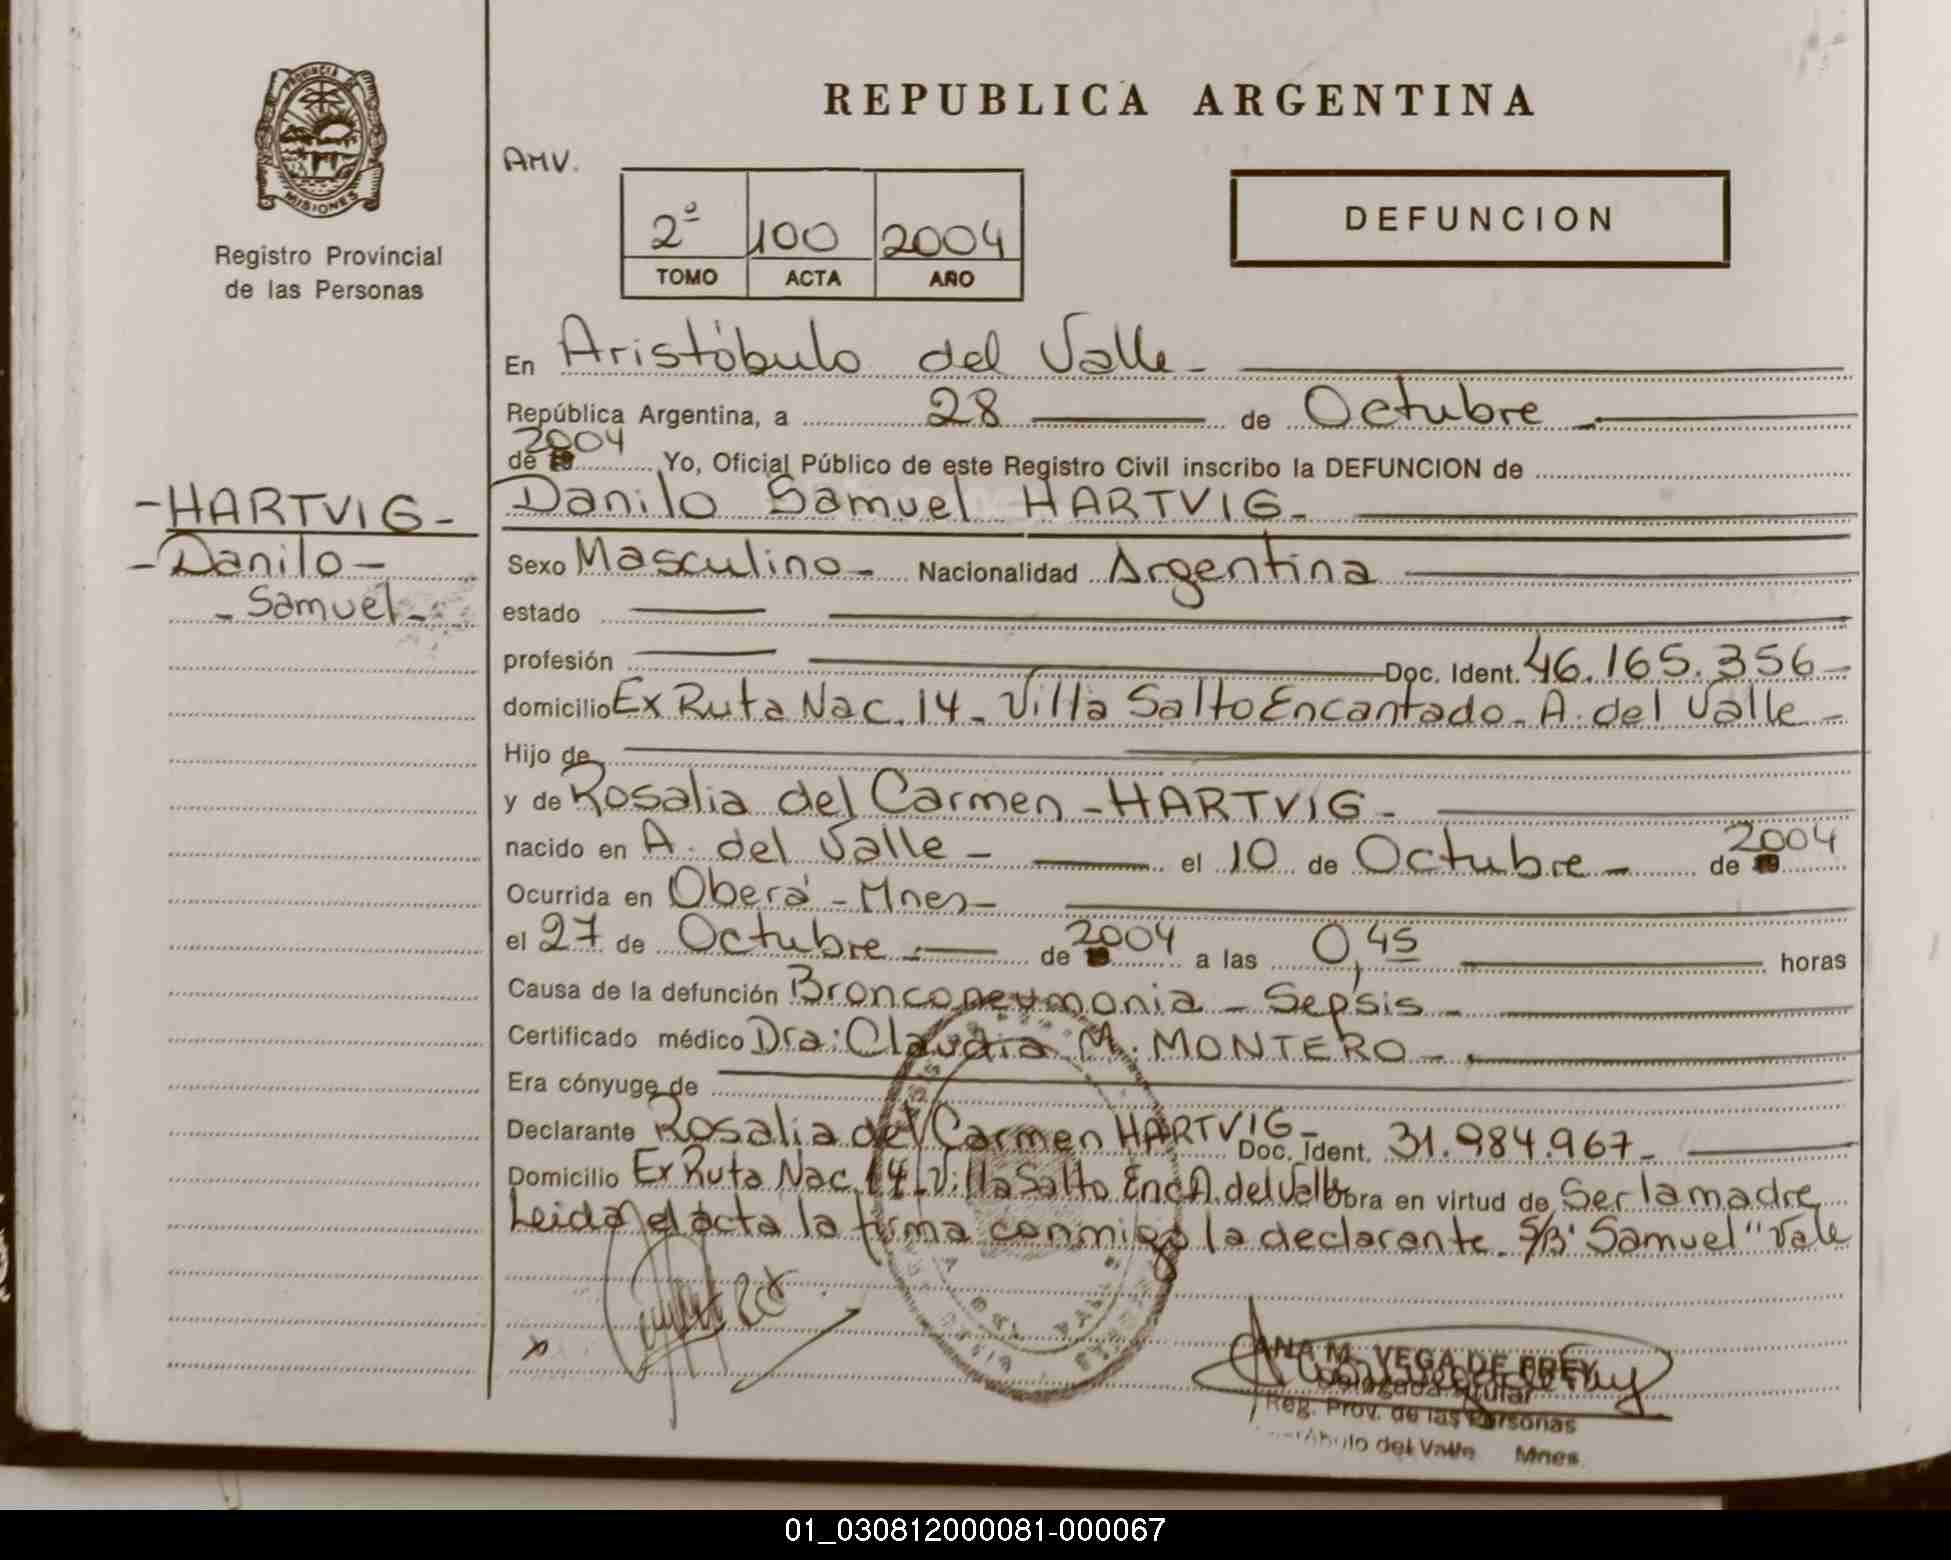 PROVINCIA DE
MISIONES
Registro Provincial
de las Personas
REPUBLICA ARGENTINA
AMV.
2º 100 2004
TOMO ACTA AÑO
DEFUNCION
En Aristóbulo del Valle -
República Argentina, a 28 de Octubre -
2004
de 19 Yo, Oficial Público de este Registro Civil inscribo la DEFUNCION de
- HARTVIG - Danilo Samuel HARTVIG -
- Danilo - Sexo Masculino - Nacionalidad Argentina
- Samuel - estado
profesión Doc. Ident. 46.165.356 -
domicilio Ex Ruta Nac. 14 - Villa Salto Encantado - A. del Valle -
Hijo de
y de Rosalia del Carmen - HARTVIG -
nacido en A. del Valle - el 10 de Octubre - de 19 2004
Ocurrida en Oberá - Mnes -
el 27 de Octubre - de 19 2004 a las 0,45 horas
Causa de la defunción Bronconeumonia - Sepsis -
Certificado médico Dra: Claudia M. MONTERO -
Era cónyuge de
Declarante Rosalia del Carmen HARTVIG - Doc. Ident. 31.984.967 -
Domicilio Ex Ruta Nac. 14 - Villa Salto Enc. A. del Valle obra en virtud de Ser la madre
Leida el acta la firma conmigo la declarante. S/B "Samuel" Vale
ANA M. VEGA DE FREY
Delegada Titular
Reg. Prov. de las Personas
Aristóbulo del Valle Mnes.
01_030812000081-000067